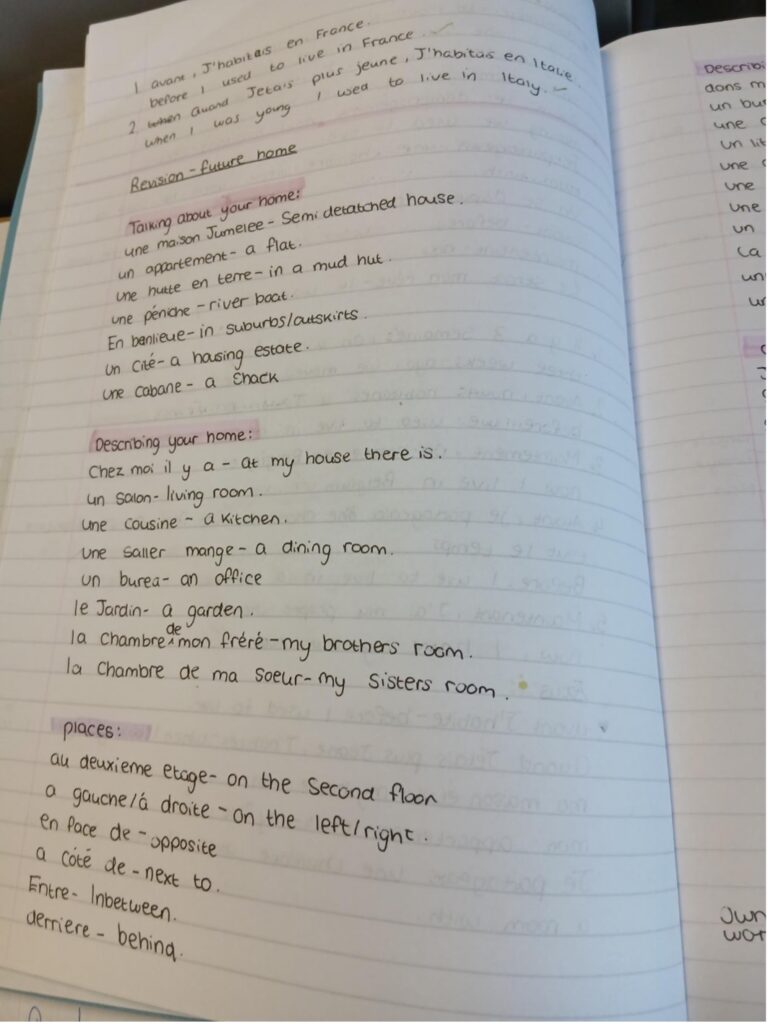 1. avant, J'habitais en France.
before I used to live in France.
2. Quand Jetais plus jeune, J'habitais en Italie
when I was young I used to live in Italy.
Revision - future home
Talking about your home:
une maison Jumelee - Semi detatched house.
un appartement - a flat.
une hutte en terre - in a mud hut.
une péniche - river boat.
En banlieue - in suburbs/outskirts.
un cité - a housing estate.
une cabane - a Shack
Describing your home:
Chez moi il y a - at my house there is.
un salon - living room.
une cousine - a kitchen.
une saller mange - a dining room.
un burea - an office
le Jardin - a garden.
la chambre de mon fréré - my brothers room.
la chambre de ma soeur - my sisters room.
places:
au deuxieme etage - on the second floor
a gauche/á droite - on the left/right.
en face de - opposite
a côté de - next to.
Entre - Inbetween.
derriere - behind.
Describi
dans m
un bu
une
un lit
une
une
une
un
La
un
un
Own
wor